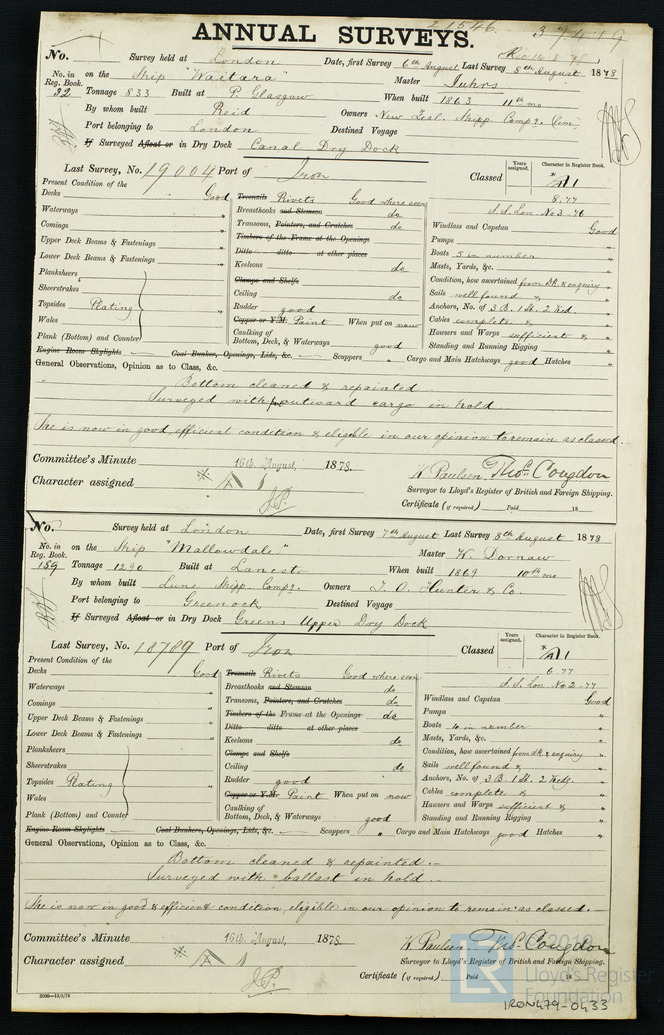 21546. 37419
ANNUAL SURVEYS.
No. Survey held at London Date, first Survey 6th August Last Survey 8th August 1878
Rec 14.8.78
No. in Reg. Book. on the Ship "Waitara" Master
32 Tonnage 833 Built at P. Glasgow When built 1863 11th mo
By whom built Reid Owners New Zeal. Shipp. Compy. Lim.
Port belonging to London Destined Voyage
If Surveyed Afloat or in Dry Dock Canal Dry Dock
Last Survey, No. 19004 Port of Iron Classed
Years assigned. Character in Register Book.
A1
8.77
S.S. Lon No 3-76
Present Condition of the
Decks Good
Waterways "
Comings "
Upper Deck Beams & Fastenings "
Lower Deck Beams & Fastenings "
Planksheers
Sheerstrakes
Topsides Plating "
Wales
Plank (Bottom) and Counter
Engine Room Skylights Coal Bunker, Openings, Lids, &c. Scuppers " Cargo and Main Hatchways good Hatches "
Treenails Rivets Good where seen
Breasthooks and Stemson do
Transoms, Pointers, and Crutches do
Timbers of the Frame at the Openings
Ditto ditto at other places
Keelsons do
Clamps and Shelfs
Ceiling do
Rudder good
Copper or Y.M. Paint When put on now
Caulking of Bottom, Deck, & Waterways good
Windlass and Capstan Good
Pumps "
Boats 5 in number "
Masts, Yards, &c. "
Condition, how ascertained from dk & enquiry
Sails well found & "
Anchors, No. of 3 B. 1 St. 2 Ked.
Cables complete & "
Hawsers and Warps sufficient & "
Standing and Running Rigging "
General Observations, Opinion as to Class, &c.
Bottom cleaned & repainted.
Surveyed with outward cargo in hold
She is now in good, efficient condition & eligible in our opinion to remain as classed.
Committee's Minute 16th August, 1878.
Character assigned A 1
J.P.
W Paulsen Thos. Congdon
Surveyor to Lloyd's Register of British and Foreign Shipping.
Certificate (if required) Paid 18
No. Survey held at London Date, first Survey 7th August Last Survey 8th August 1878
No. in Reg. Book. on the Ship "Mallowdale" Master W. Dornaw
159 Tonnage 1290 Built at Lancstr. When built 1869 10th mo
By whom built Lune Shipp. Compy. Owners J. O. Hunter & Co.
Port belonging to Greenock Destined Voyage
If Surveyed Afloat or in Dry Dock Greens Upper Dry Dock
Last Survey, No. 18789 Port of Iron Classed
Years assigned. Character in Register Book.
A1
6.77
S.S. Lon. No 2-77
Present Condition of the
Decks Good
Waterways "
Comings "
Upper Deck Beams & Fastenings "
Lower Deck Beams & Fastenings "
Planksheers
Sheerstrakes
Topsides Plating "
Wales
Plank (Bottom) and Counter
Engine Room Skylights Coal Bunkers, Openings, Lids, &c. Scuppers " Cargo and Main Hatchways good Hatches "
Treenails Rivets Good where seen
Breasthooks and Stemson do
Transoms, Pointers, and Crutches do
Timbers of the Frame at the Openings do
Ditto ditto at other places
Keelsons do
Clamps and Shelfs
Ceiling do
Rudder good
Copper or Y.M. Paint When put on now
Caulking of Bottom, Deck, & Waterways good
Windlass and Capstan Good
Pumps "
Boats 4 in number "
Masts, Yards, &c. "
Condition, how ascertained from dk & enquiry
Sails well found & "
Anchors, No. of 3 B. 1 St. 2 Kedg.
Cables complete & "
Hawsers and Warps sufficient & "
Standing and Running Rigging "
General Observations, Opinion as to Class, &c.
Bottom cleaned & repainted.
Surveyed with ballast in hold.
She is now in good & efficient condition, eligible in our opinion to remain as classed.
Committee's Minute 16th August, 1878.
Character assigned A 1
J.P.
W Paulsen Thos. Congdon
Surveyor to Lloyd's Register of British and Foreign Shipping.
Certificate (if required) Paid 18
Lloyd's Register Foundation
IRON479-0433